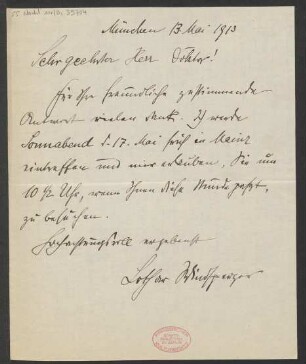 München 13. Mai 1913
Sehrgeehrter Herr Doktor!
Für Ihre freundliche zustimmende
Antwort vielen Dank. Ich werde
Sonnabend d. 17. Mai früh in Mainz
eintreffen und mir erlauben, Sie um
10 ½ Uhr, wenn Ihnen diese Stunde passt,
zu besuchen.
Hochachtungsvoll ergebenst
Lothar Windsperger